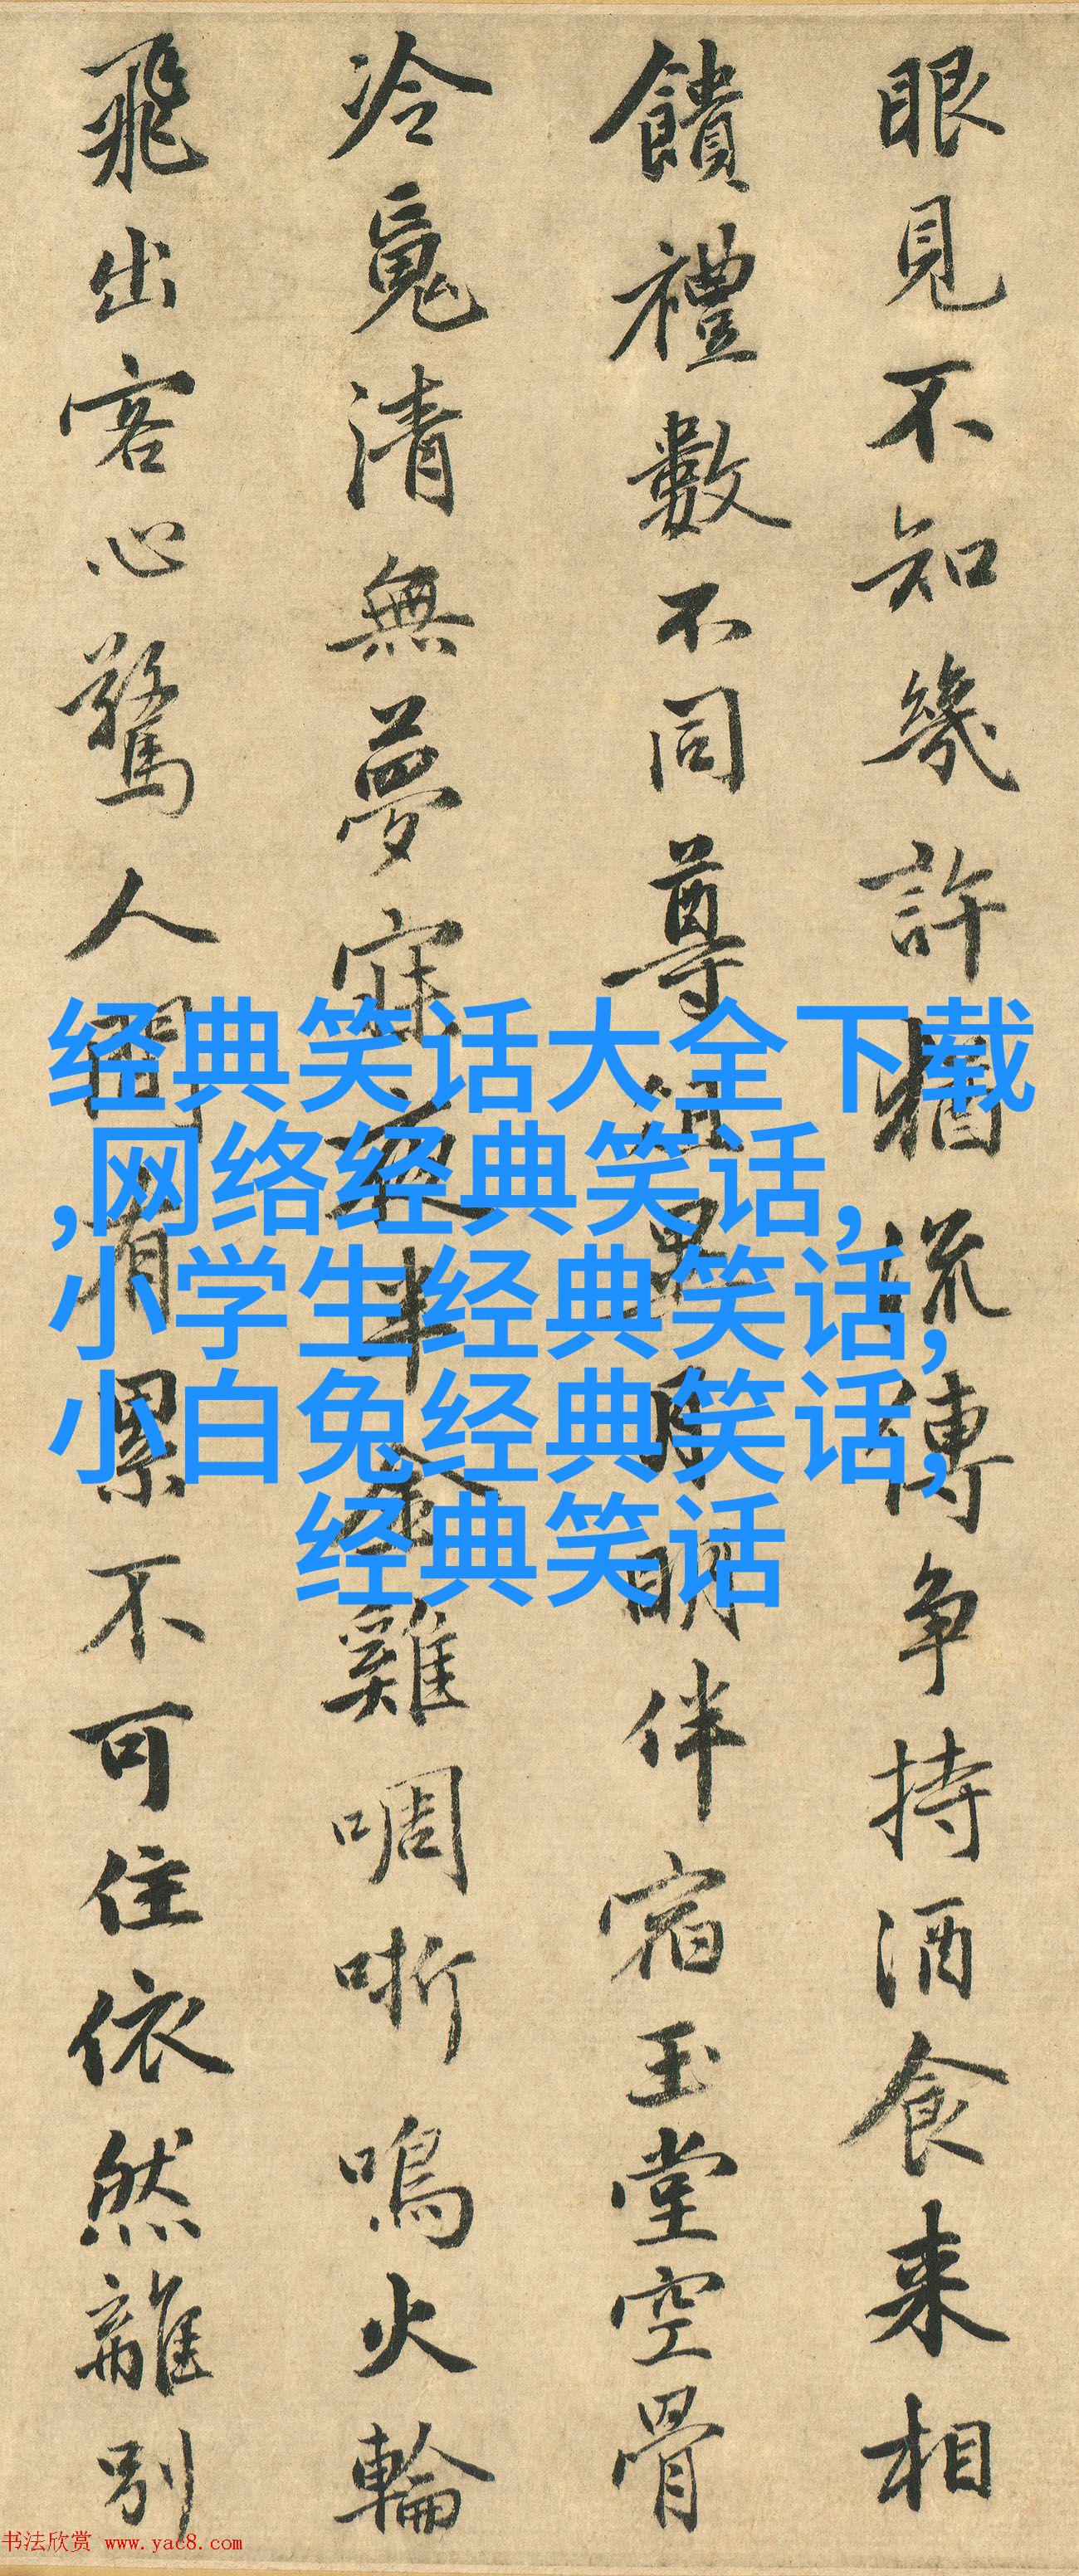 眼見不知幾許猶流傳争持酒食来相
饋禮數不同尊俎異月明伴宿玉堂空骨
冷魂清無夢寐夜半金雞啁哳鳴火輪
飛出客心驚人間有累不可住依然離別
经典笑话大全下载
,网络经典笑话,
小学生经典笑话,
小白兔经典笑话,
经典笑话
书法欣赏 www.yac8.com